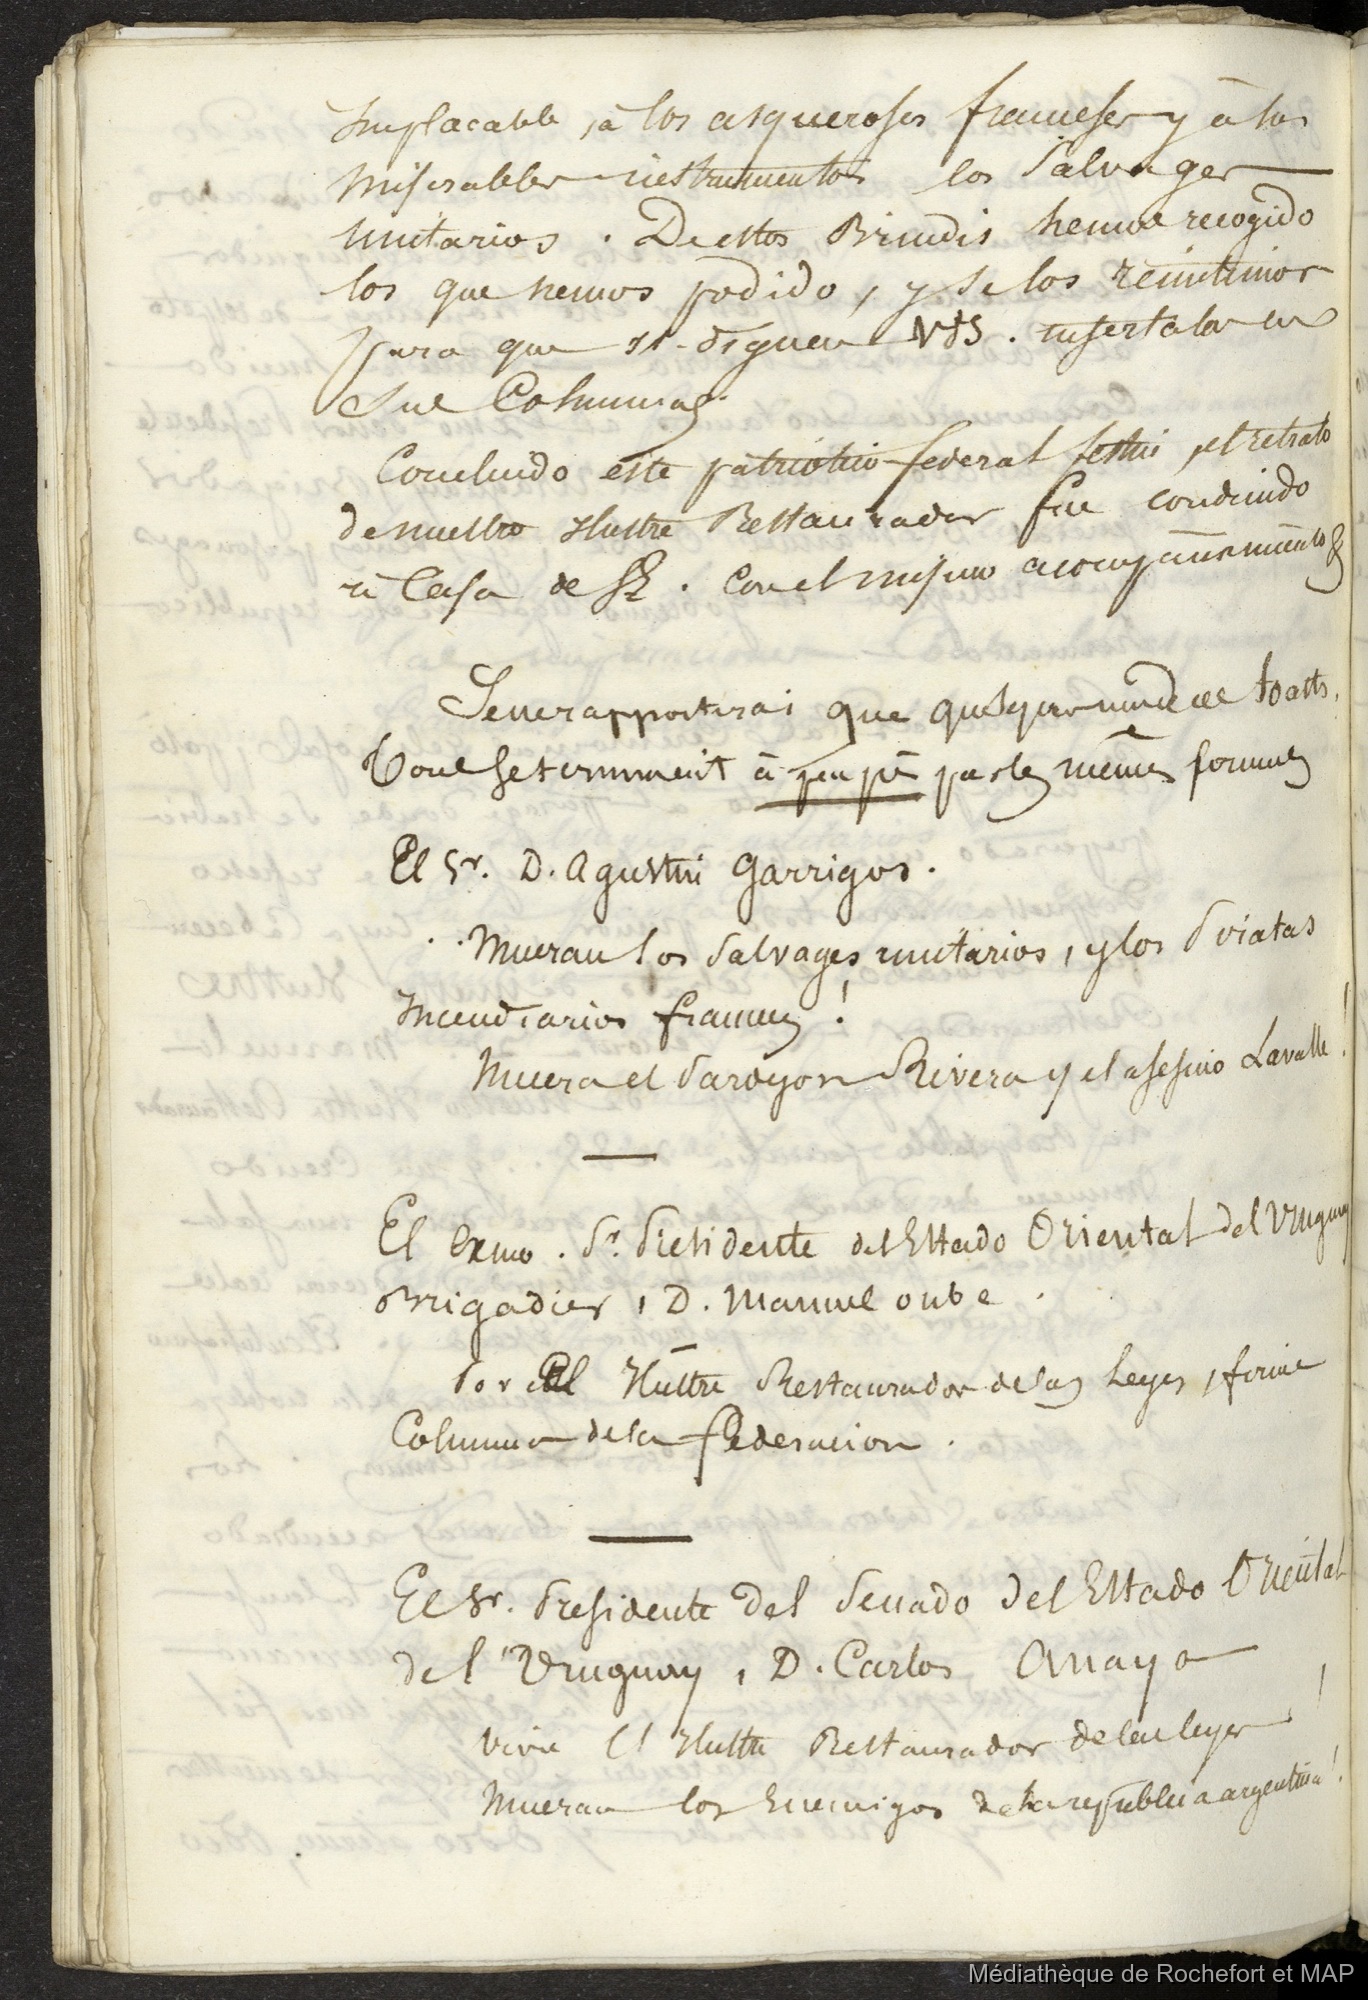 Implacable, à los asquerosos franceses y à los
Miserables instrumentos los Salvages
Unitarios. De estos Brindis hemos recogido
los que hemos podido, y se los remitimos
para que se dignen VdS. insertalos en
sus Columnas.
Concluido este patriotico federal festin, el retrato
de nuestro Ilustre Restaurador fue conducido
à Casa de SE. Con el mismo acompañamiento &
Je ne rapporterai que quelques uns de ces toasts.
Tous se terminent à peu près par les mêmes formules
El Sr. D. Agustin Garrigos.
Mueran los Salvages unitarios, y los Piratas
Incendiarios franceses!
Muera el Pardejon Rivera y el asesino Lavalle!
El Exmo. Sr. Presidente del Estado Oriental del Uruguay
Brigadier, D. Manuel Oribe.
Por el Ilustre Restaurador de las Leyes, firme
Columna de la federacion.
El Sr. Presidente del Senado del Estado Oriental
del Uruguay, D. Carlos Anaya
Viva el Ilustre Restaurador de las leyes!
Mueran los Enemigos de la republica argentina!
Médiathèque de Rochefort et MAP